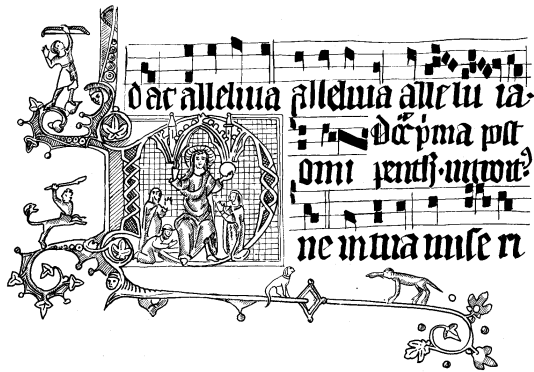 dac alleluia alleluia alle lu ia.
Doc p̄ma post
omi penth. introitꝰ
ne in tua mise ri